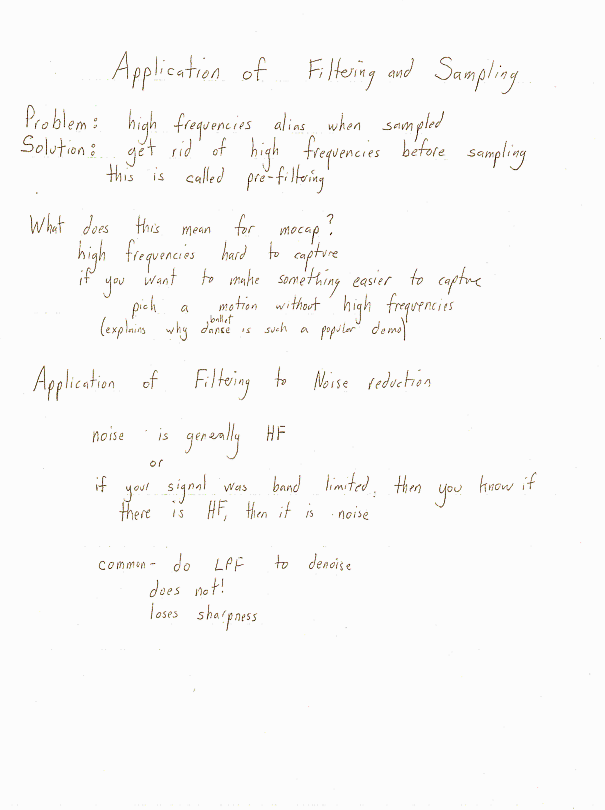 Application of Filtering and Sampling
Problem: high frequencies alias when sampled
Solution: get rid of high frequencies before sampling
this is called pre-filtering
What does this mean for mocap?
high frequencies hard to capture
if you want to make something easier to capture
pick a motion without high frequencies
ballet
(explains why dance is such a popular demo)
Application of Filtering to Noise reduction
noise is generally HF
or
if your signal was band limited, then you know if
there is HF, then it is noise
common- do LPF to denoise
does not!
loses sharpness